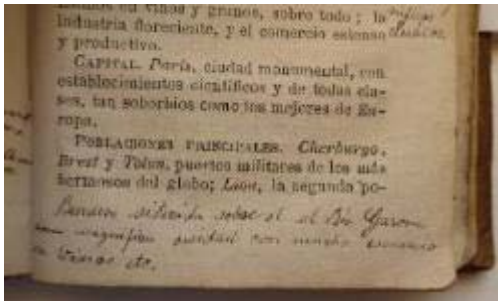 en vinos y granos, sobre todo; la
industria floreciente, y el comercio estenso
y productivo.
CAPITAL. París, ciudad monumental, con
establecimientos científicos y de todas cla-
ses, tan soberbios como los mejores de Eu-
ropa.
POBLACIONES PRINCIPALES. Cherburgo,
Brest y Tolon, puertos militares de los más
hermosos del globo; Lion, la segunda po-
situada sobre el Rio Garona
magnifica con mucho comercio
vinos etc.